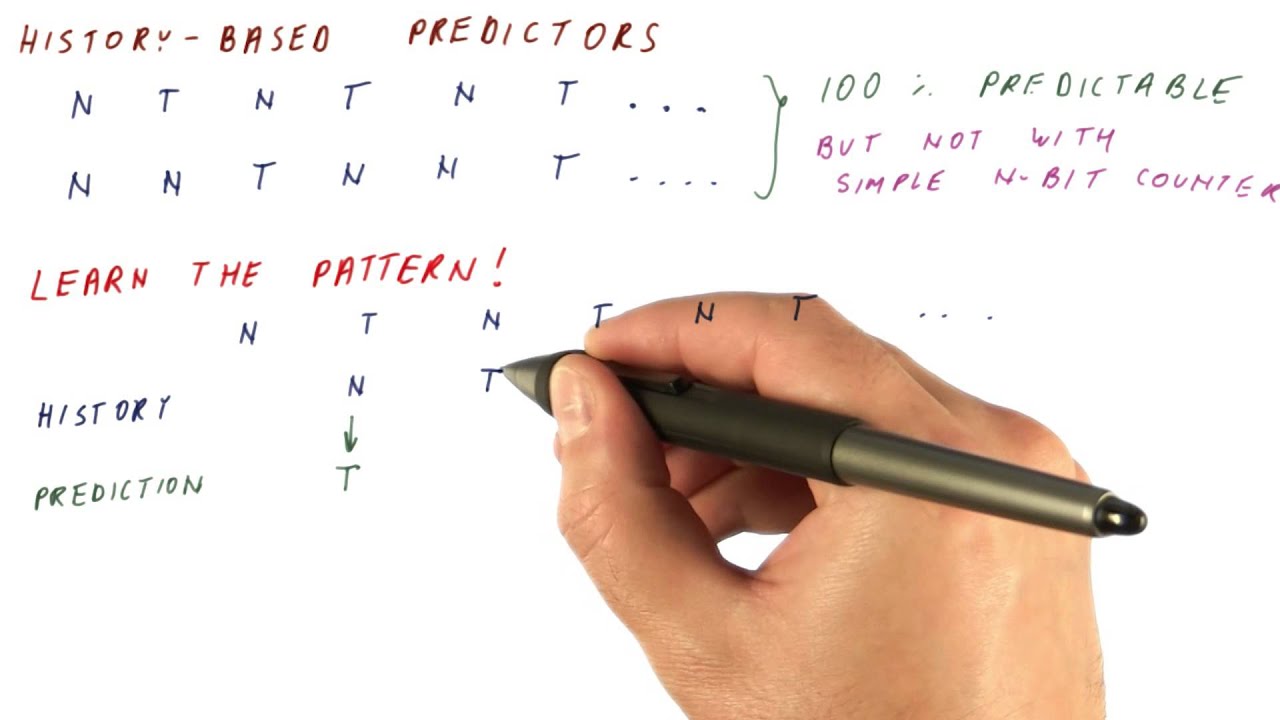 HISTORY-BASED PREDICTORS
N T N T N T ...
N N T N N T ....
100 % PREDICTABLE
BUT NOT WITH
SIMPLE N-BIT COUNTER
LEARN THE PATTERN!
N T N T N T ...
HISTORY N T
PREDICTION T